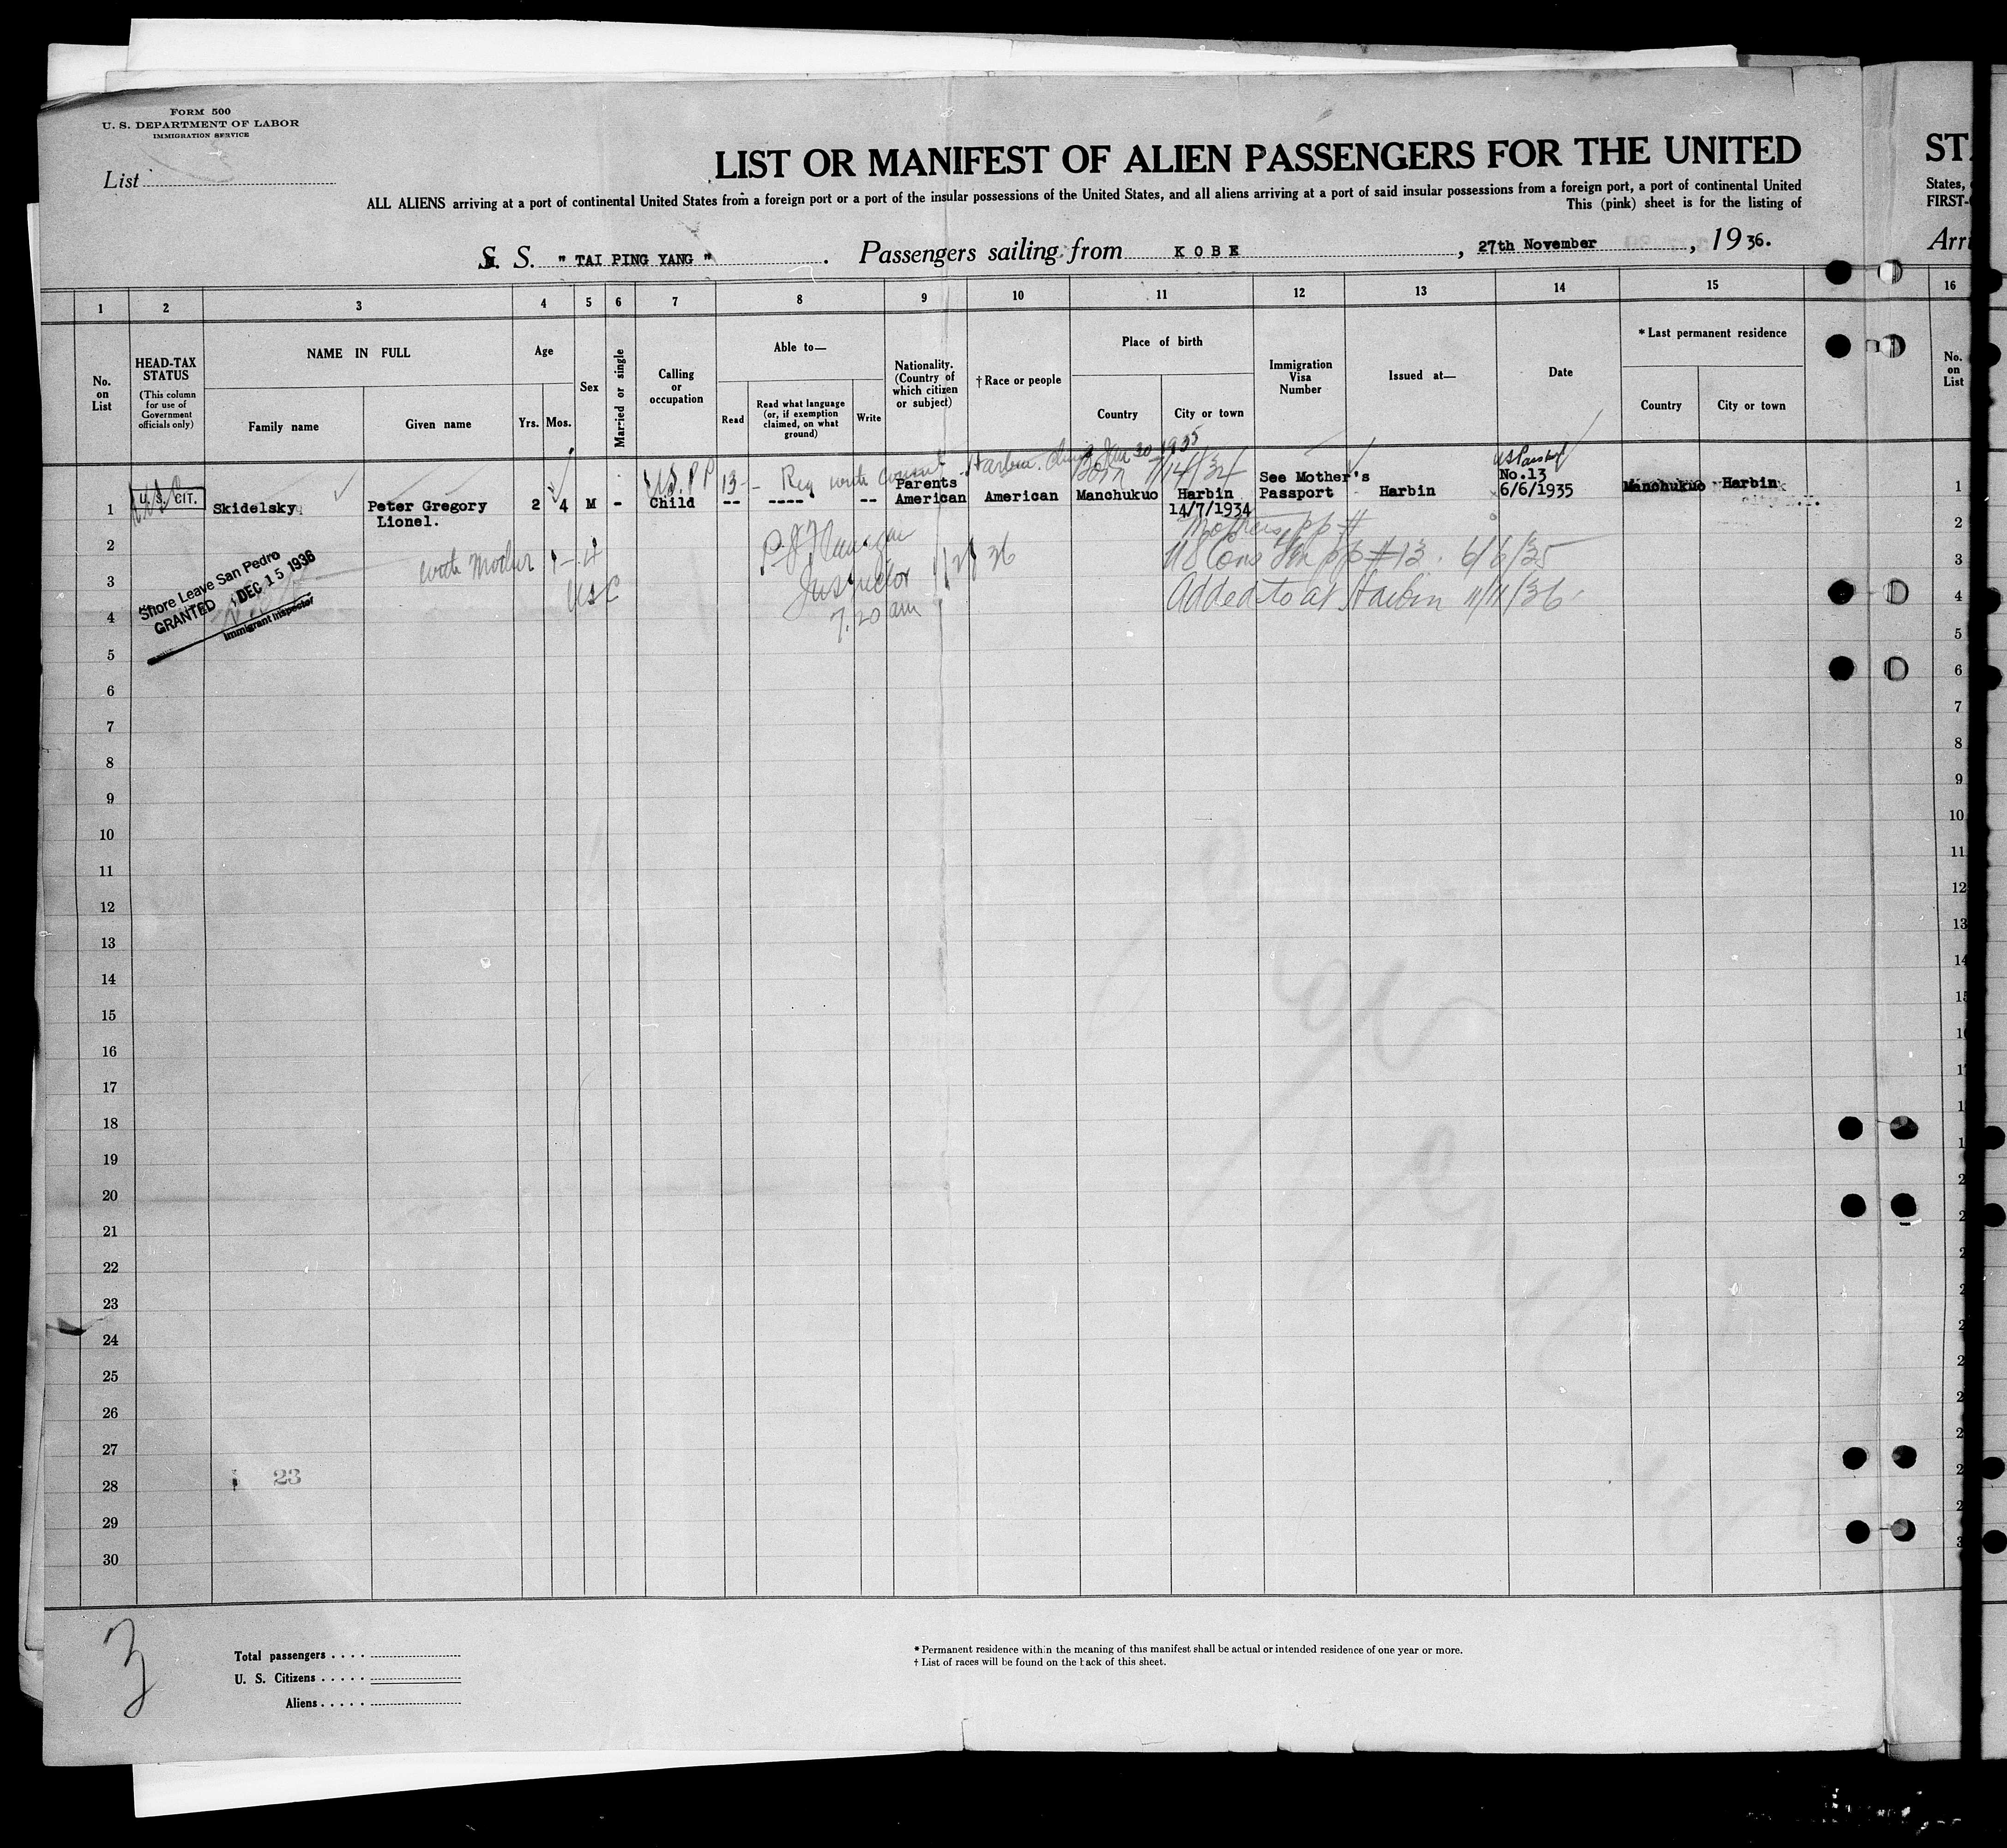 FORM 500
U. S. DEPARTMENT OF LABOR
IMMIGRATION SERVICE
List
LIST OR MANIFEST OF ALIEN PASSENGERS FOR THE UNITED
ALL ALIENS arriving at a port of continental United States from a foreign port or a port of the insular possessions of the United States, and all aliens arriving at a port of said insular possessions from a foreign port, a port of continental United
This (pink) sheet is for the listing of
S. S. " TAI PING YANG " . Passengers sailing from K O B E , 27th November , 19 36.
ST
States,
FIRST-
Arr
1 2 3 4 5 6 7 8 9 10 11 12 13 14 15 16
No. on List
HEAD-TAX STATUS
(This column for use of Government officials only)
NAME IN FULL
Family name
Given name
Age
Yrs.
Mos.
Sex
Married or single
Calling or occupation
Able to—
Read
Read what language (or, if exemption claimed, on what ground)
Write
Nationality. (Country of which citizen or subject)
† Race or people
Place of birth
Country
City or town
Immigration Visa Number
Issued at—
Date
* Last permanent residence
Country
City or town
No. on List
Harbin. China Jan 30 1935
U.S. PP 13 - Reg with consul
Born 7/14/34
US Passport
1 U. S. CIT. Skidelsky Peter Gregory Lionel. 2 4 M - Child -- ---- -- Parents American American Manchukuo Harbin 14/7/1934 See Mother's Passport Harbin No.13 6/6/1935 Manchukuo Harbin 1
Mothers pp #
with Mother
USC
Inspector
7.20 am
36
pp #13. 6/6/35
Added to at Harbin 11/11/36
Shore Leave San Pedro
GRANTED DEC 15 1936
Immigrant Inspector
2
3
4
5
6
7
8
9
10
11
12
13
14
15
16
17
18
19
20
21
22
23
24
25
26
27
28
29
30
23
3
Total passengers . . . .
U. S. Citizens . . . . .
Aliens . . . . .
* Permanent residence within the meaning of this manifest shall be actual or intended residence of one year or more.
† List of races will be found on the back of this sheet.